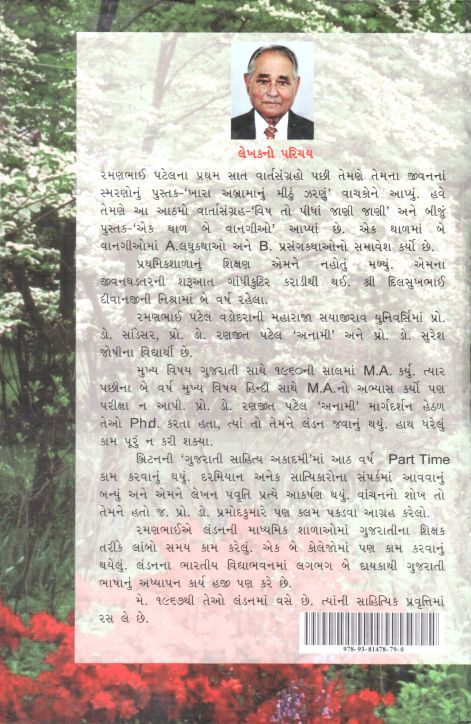 લેખકનો પરિચય
રમણભાઈ પટેલના પ્રથમ સાત વાર્તાસંગ્રહો પછી તેમણે તેમના જીવનનાં
સ્મરણોનું પુસ્તક-‘ખારા અબ્રામાનું મીઠું ઝરણું’ વાચકોને આપ્યું. હવે
તેમણે આ આઠમો વાર્તાસંગ્રહ-‘વિષ તો પીધાં જાણી જાણી’ અને બીજું
પુસ્તક-‘એક થાળ બે વાનગીઓ’ આપ્યાં છે. એક થાળમાં બે
વાનગીઓમાં A.લઘુકથાઓ અને B. પ્રસંગકથાઓનો સમાવેશ કર્યો છે.
પ્રાથમિકશાળાનું શિક્ષણ એમને નહોતું મળ્યું. એમના
જીવનઘડતરની શરૂઆત ગાંધીકુટિર કરાડીથી થઈ. શ્રી દિલસુખભાઈ
દીવાનજીની નિશ્રામાં બે વર્ષ રહેલા.
રમણભાઈ પટેલ વડોદરાની મહારાજા સયાજીરાવ યુનિવર્સિમાં પ્રો.
ડો. સાંડેસર, પ્રો. ડો. રણજીત પટેલ ‘અનામી’ અને પ્રો. ડો. સુરેશ
જોષીના વિદ્યાર્થી છે.
મુખ્ય વિષય ગુજરાતી સાથે ૧૯૬૦ની સાલમાં M.A. કર્યું. ત્યાર
પછીના બે વર્ષ મુખ્ય વિષય હિન્દી સાથે M.A.નો અભ્યાસ કર્યો પણ
પરીક્ષા ન આપી. પ્રો. ડો. રણજીત પટેલ ‘અનામી’ માર્ગદર્શન હેઠળ
તેઓ Phd. કરતા હતા, ત્યાં તો તેમને લંડન જવાનું થયું. હાથ ધરેલું
કામ પૂરું ન કરી શક્યા.
બ્રિટનની ‘ગુજરાતી સાહિત્ય અકાદમી’માં આઠ વર્ષ Part Time
કામ કરવાનું થયું. દરમિયાન અનેક સાત્યિકારોના સંપર્કમાં આવવાનું
બન્યું અને એમને લેખન પ્રવૃતિ પ્રત્યે આકર્ષણ થયું. વાંચનનો શોખ તો
તેમને હતો જ. પ્રો. ડો. પ્રમોદકુમારે પણ કલમ પકડવા આગ્રહ કરેલો.
રમણભાઈએ લંડનની માધ્યમિક શાળાઓમાં ગુજરાતીના શિક્ષક
તરીકે લાંબો સમય કામ કરેલું. એક બે કોલેજોમાં પણ કામ કરવાનું
થયેલું. લંડનના ભારતીય વિદ્યાભવનમાં લગભગ બે દાયકાથી ગુજરાતી
ભાષાનું અધ્યાપન કાર્ય હજી પણ કરે છે.
મે. ૧૯૬૭થી તેઓ લંડનમાં વસે છે. ત્યાંની સાહિત્યિક પ્રવૃત્તિમાં
રસ લે છે.
978-93-81478-79-0